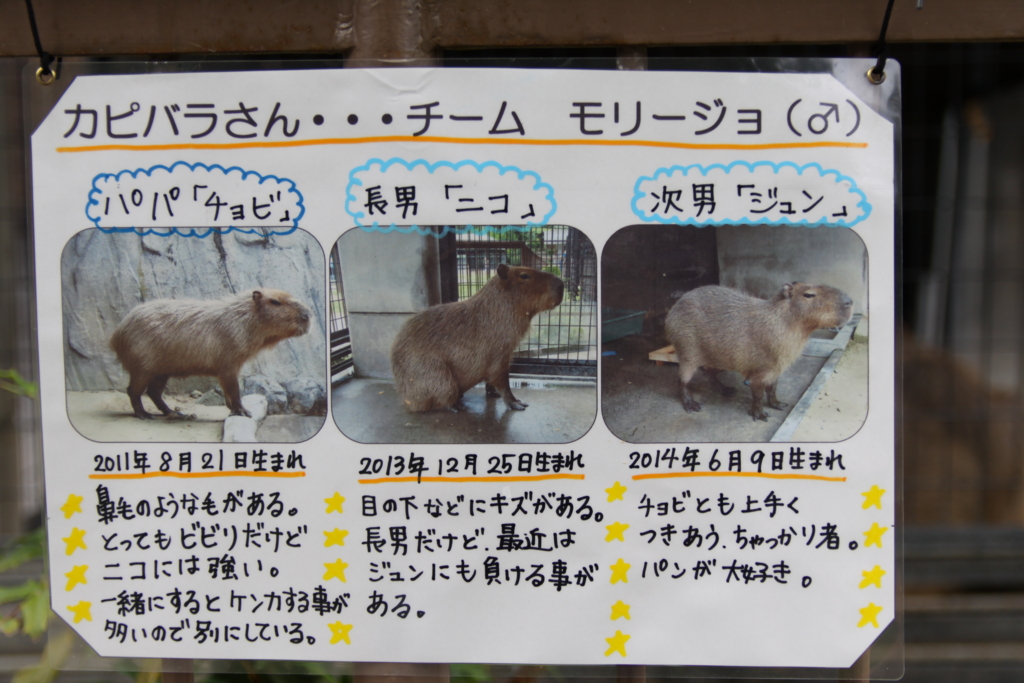 カピバラさん・・・チーム　モリージョ(♂)
パパ「チョビ」
2011年8月21日生まれ
鼻毛のような毛がある。
とってもビビリだけど
ニコには強い。
一緒にするとケンカする事が
多いので別にしている。
長男「ニコ」
2013年12月25日生まれ
目の下などにキズがある。
長男だけど、最近は
ジュンにも負ける事が
ある。
次男「ジュン」
2014年6月9日生まれ
チョビとも上手く
つきあう、ちゃっかり者。
パンが大好き。